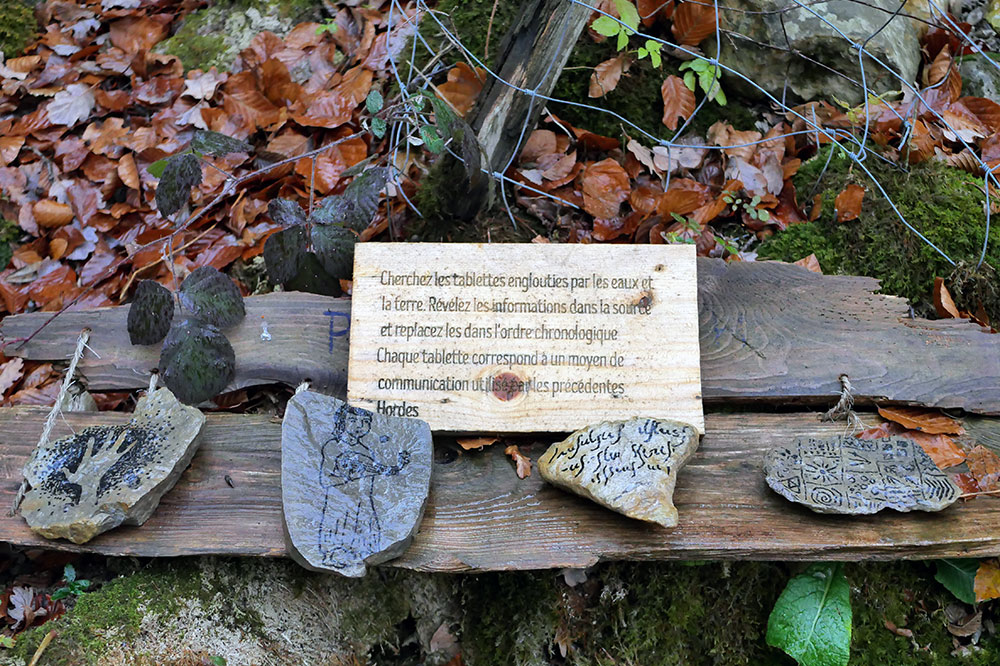 Cherchez les tablettes englouties par les eaux et
la terre. Révélez les informations dans la source
et replacez les dans l'ordre chronologique
Chaque tablette correspond à un moyen de
communication utilisé par les précédentes
Hordes
P